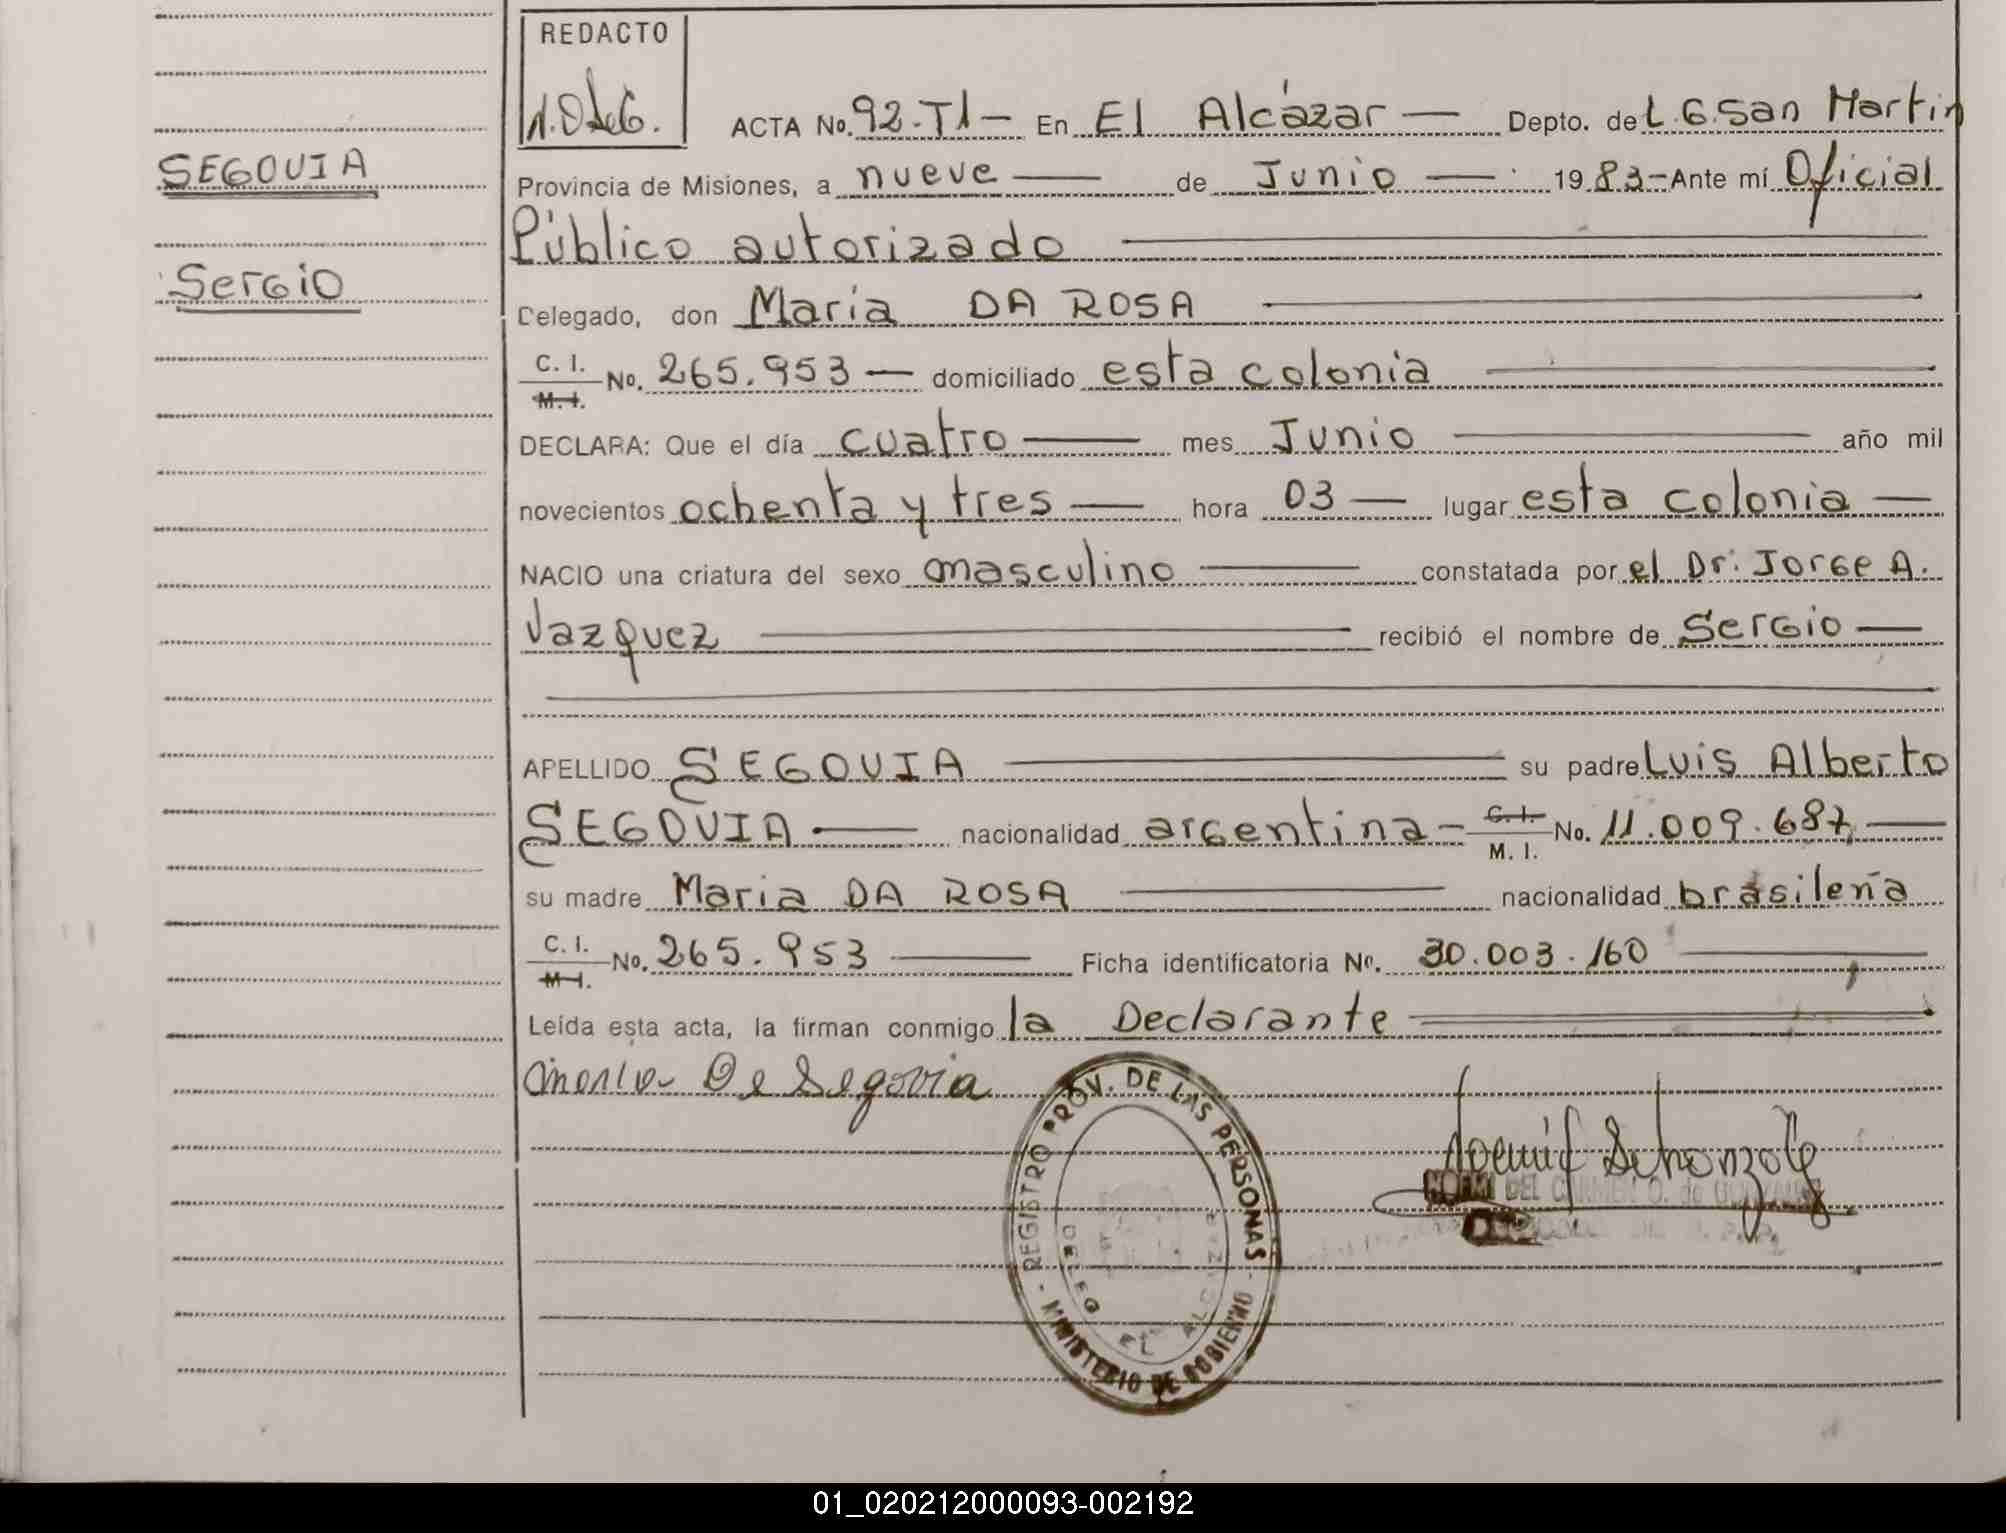 REDACTO
N.O de G.
ACTA No. 92-T1- En El Alcázar — Depto. de L.G.San Martin
SEGOVIA
Provincia de Misiones, a nueve — de Junio — 19 83- Ante mí Oficial
Público autorizado
Sergio
Delegado, don Maria DA ROSA
C. I.
M. I. No. 265.953 — domiciliado esta colonia
DECLARA: Que el día cuatro — mes Junio — año mil
novecientos ochenta y tres — hora 03 — lugar esta colonia —
NACIO una criatura del sexo masculino — constatada por el Dr. Jorge A.
Vazquez — recibió el nombre de Sergio —
APELLIDO SEGOVIA — su padre Luis Alberto
SEGOVIA — nacionalidad argentina - C. I. No. 11.009.687 —
M. I.
su madre Maria DA ROSA — nacionalidad brasileña
C. I.
M. I. No. 265.953 — Ficha identificatoria No. 30.003.160 —
Leída esta acta, la firman conmigo la Declarante
Maria De Segovia
REGISTRO PROV. DE LAS PERSONAS
- MINISTERIO DE GOBIERNO -
DELEG. EL ALCAZAR
NOEMI DEL CARMEN O. de
01_020212000093-002192